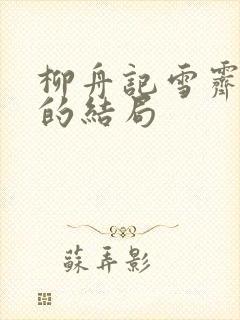 柳舟記雪霽
的結局
蘇弄影